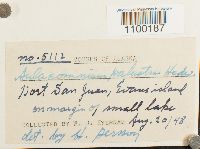 1100187
no. 5112 MOSSES OF ALASKA
Aulacomnium palustre Hedw.
Port San Juan, Evans island
on margin of small lake
COLLECTED BY W. J. EYERDAM Aug. 20/48
det. by H. Persson